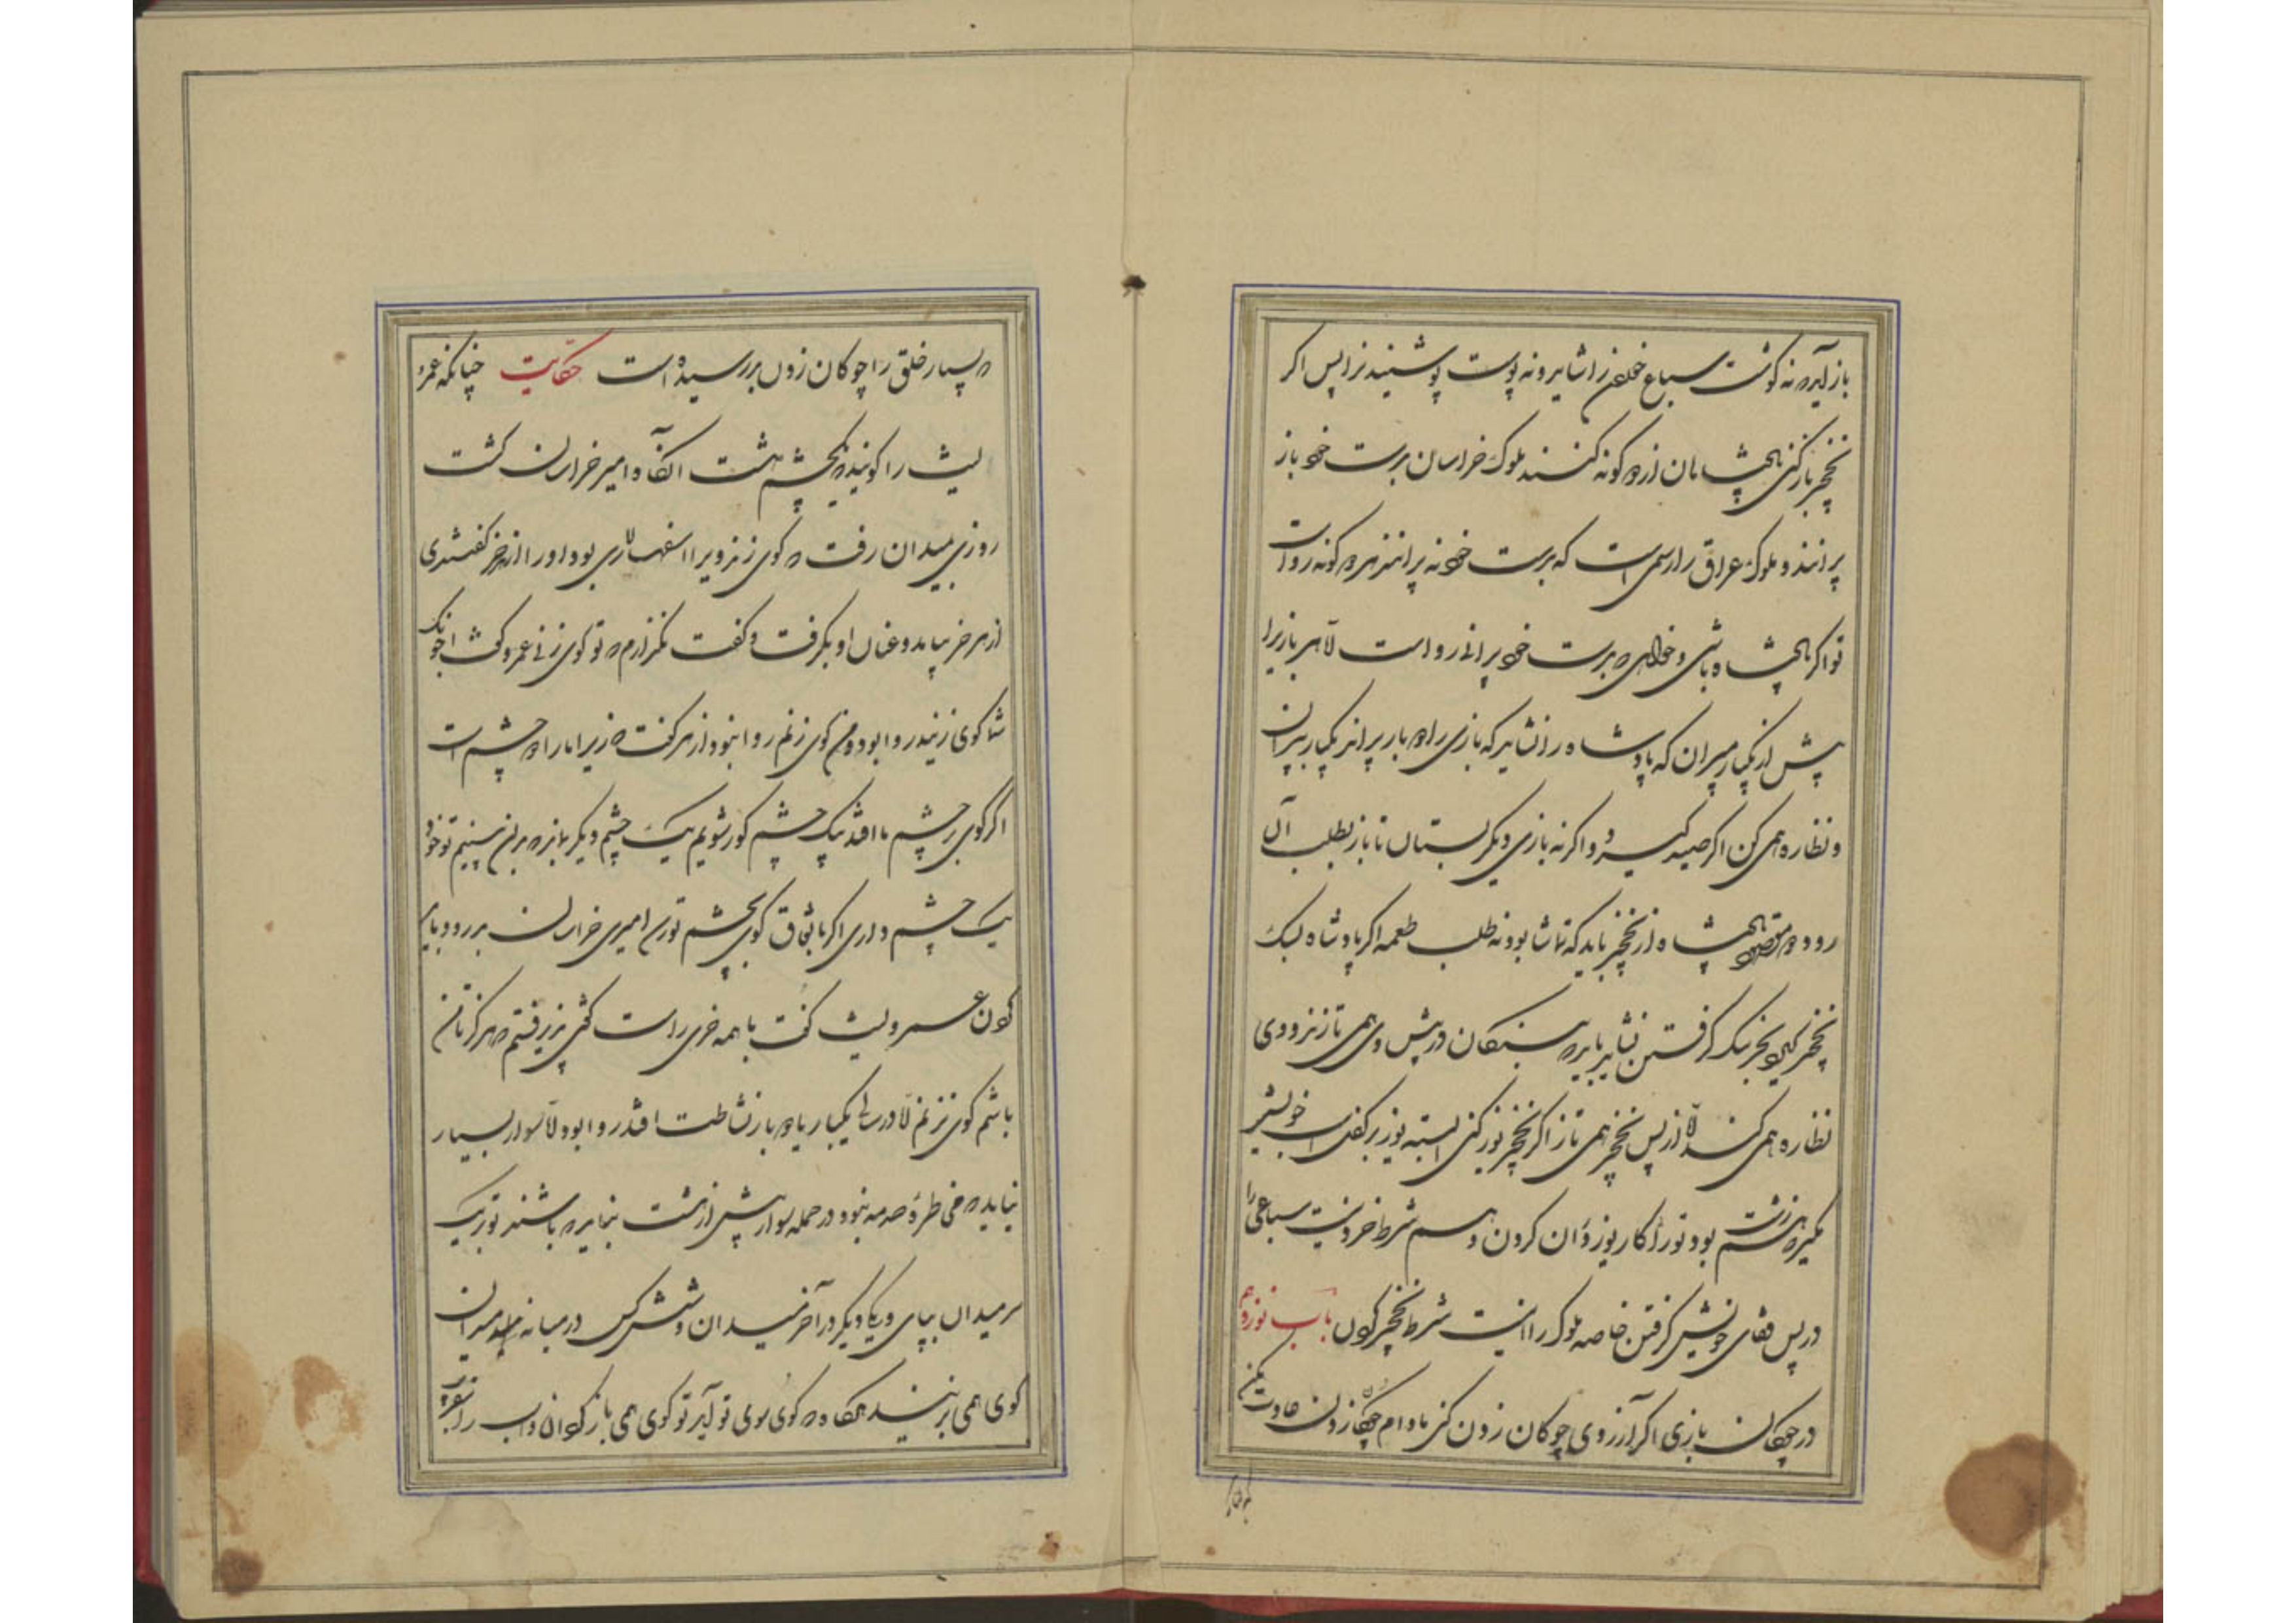 باز آید که نه گوشت سباع خوردن را شاید و نه پوست پوشیدن را پس اگر
نخچیر باز کنی پادشاهان از دو گونه کنند ملوک خراسان بدست خود باز
نپرانند و ملوک عراق را رسمی است که بدست خود نپرانند هر دو گونه رواست
تو اگر پادشاه باشی و خواهی که بدست خود پرانی رواست الا هر بازیرا
بیش از یکبار مپران که پادشاه را نشاید که بازی را دو بار پراند یکبار بپران
و نظاره همی کن اگر صید گیرد و اگر نه بازی دیگر بستان تا باز بطلب آن
رود و مقصود پادشاه از نخچیر باید که تماشا بود نه طلب طعمه اگر پادشاه بسگ
نخچیر کند سگ گرفتن نشاید باید که بندگان در پیش وی همی تازند و وی
نظاره همی کند الا از پس نخچیر همی تاز اگر نخچیر یوز کنی البته یوز بر کفل اسب خویش
مگیر که هم زشت بود تو را کار یوزداران کردن و هم شرط خرد نیست سباعی را
در پس قفای خویش گرفتن خاصه ملوک را اینست شرط نخچیر کردن باب نوزدهم
در چوگان بازی اگر آرزوی چوگان زدن کنی مادام چوگان زدن عادت مکن
که بسیار خلق را چوگان زدن بد رسیده است حکایت چنانکه عمرو
لیث را گویند بیکچشم داشت آنگاه امیر خراسان گشت
روزی بمیدان رفت که گوی زند ویرا اسفهسلاری بود او را ازهر خر گفتندی
ازهر خر بیامد و عنان او بگرفت و گفت نگذارم که تو گوی زنی عمرو گفت چونک
شما گوی زنید روا بود و من گوی زنم روا نبود ازهر گفت زیرا ما را دو چشم است
اگر گوی بر چشم ما افتد بیک چشم کور شویم یک چشم دیگر بماند که بدان بینیم تو خود
یک چشم داری اگر باتفاق گوی بچشم تو زند امیری خراسان بدرود باید
کردن عمرو لیث گفت با همه خری راست گفتی پذیرفتم که هرگز تا من
باشم گوی نزنم الا در سالی یکبار یا دو بار نشاطت افتد روا بود الا سوار بسیار
نباید که مخاطره و صدمه نبود و در جمله سوار بیش از هشت نباید که باشند تو بر یک
سر میدان بپای و یکی دیگر در آخر میدان و شش کس در میانه میدان
گوی همی زنند هرگاه که گوی سوی تو آید تو گوی همی باز گردان و اسب را